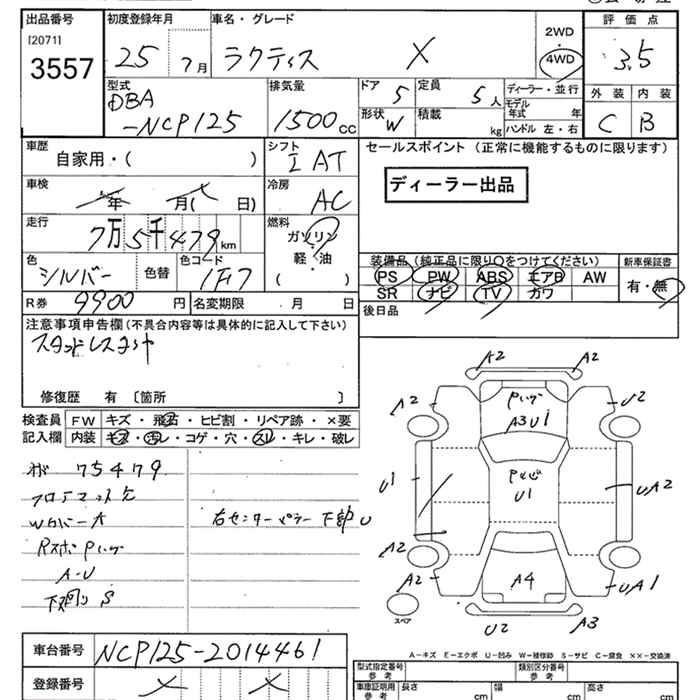 出品番号 初度登録年月 車名・グレード 2WD 評価点
[2071]
3557 25 7月 ラクティス X 4WD 3.5
型式 排気量 ドア 定員 ディーラー・並行 外装 内装
DBA 5 5人 モデル年式 年
-NCP125 1500cc 形状 W 積載 kg ハンドル 左・右 C B
車歴 シフト セールスポイント (正常に機能するものに限ります)
自家用・( ) I AT
車検 冷房 ディーラー出品
年 月( 日) AC
走行 燃料
7万5千479km ガソリン
軽・油
色 色コード ( ) 装備品(純正品に限り○をつけてください) 新車保証書
シルバー 色替 1F7 PS PW ABS エアB AW 有・無
SR ナビ TV カワ
R券 9900円 名変期限 月 日 後日品
注意事項申告欄(不具合内容等は具体的に記入して下さい)
スタッドレスタイヤ
修復歴 有 〔箇所 〕
検査員 FW キズ・飛石・ヒビ割・リペア跡・×要
記入欄 内装 キズ・汚レ・コゲ・穴・スレ・キレ・破レ
75479
フロアマット欠
Wカバー大
右センターピラー下部U
A-U
下廻りS
A2 A2
A2 U2
A3U1
U1 U1 UA2
A2 A2
A4 UA1
スペア
U2 A3
A-キズ E-エクボ U-凹み W-補修跡 S-サビ C-腐食 ××-交換済
車台番号 NCP125-2014461
登録番号
型式指定番号 参考 類別区分番号 参考
車庫証明用 参考 長さ cm 幅 cm 高さ cm